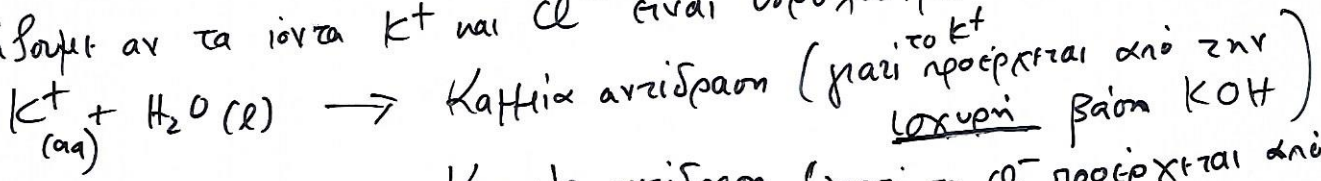 δουμε αν τα ιόντα K⁺ και Cl είναι
K⁺(aq) + H₂O (l) → Καμμία αντίδραση (γιατί το K⁺ προέρχεται από την ισχυρή βάση KOH)
αντίδραση Cl⁻ προέρχεται από